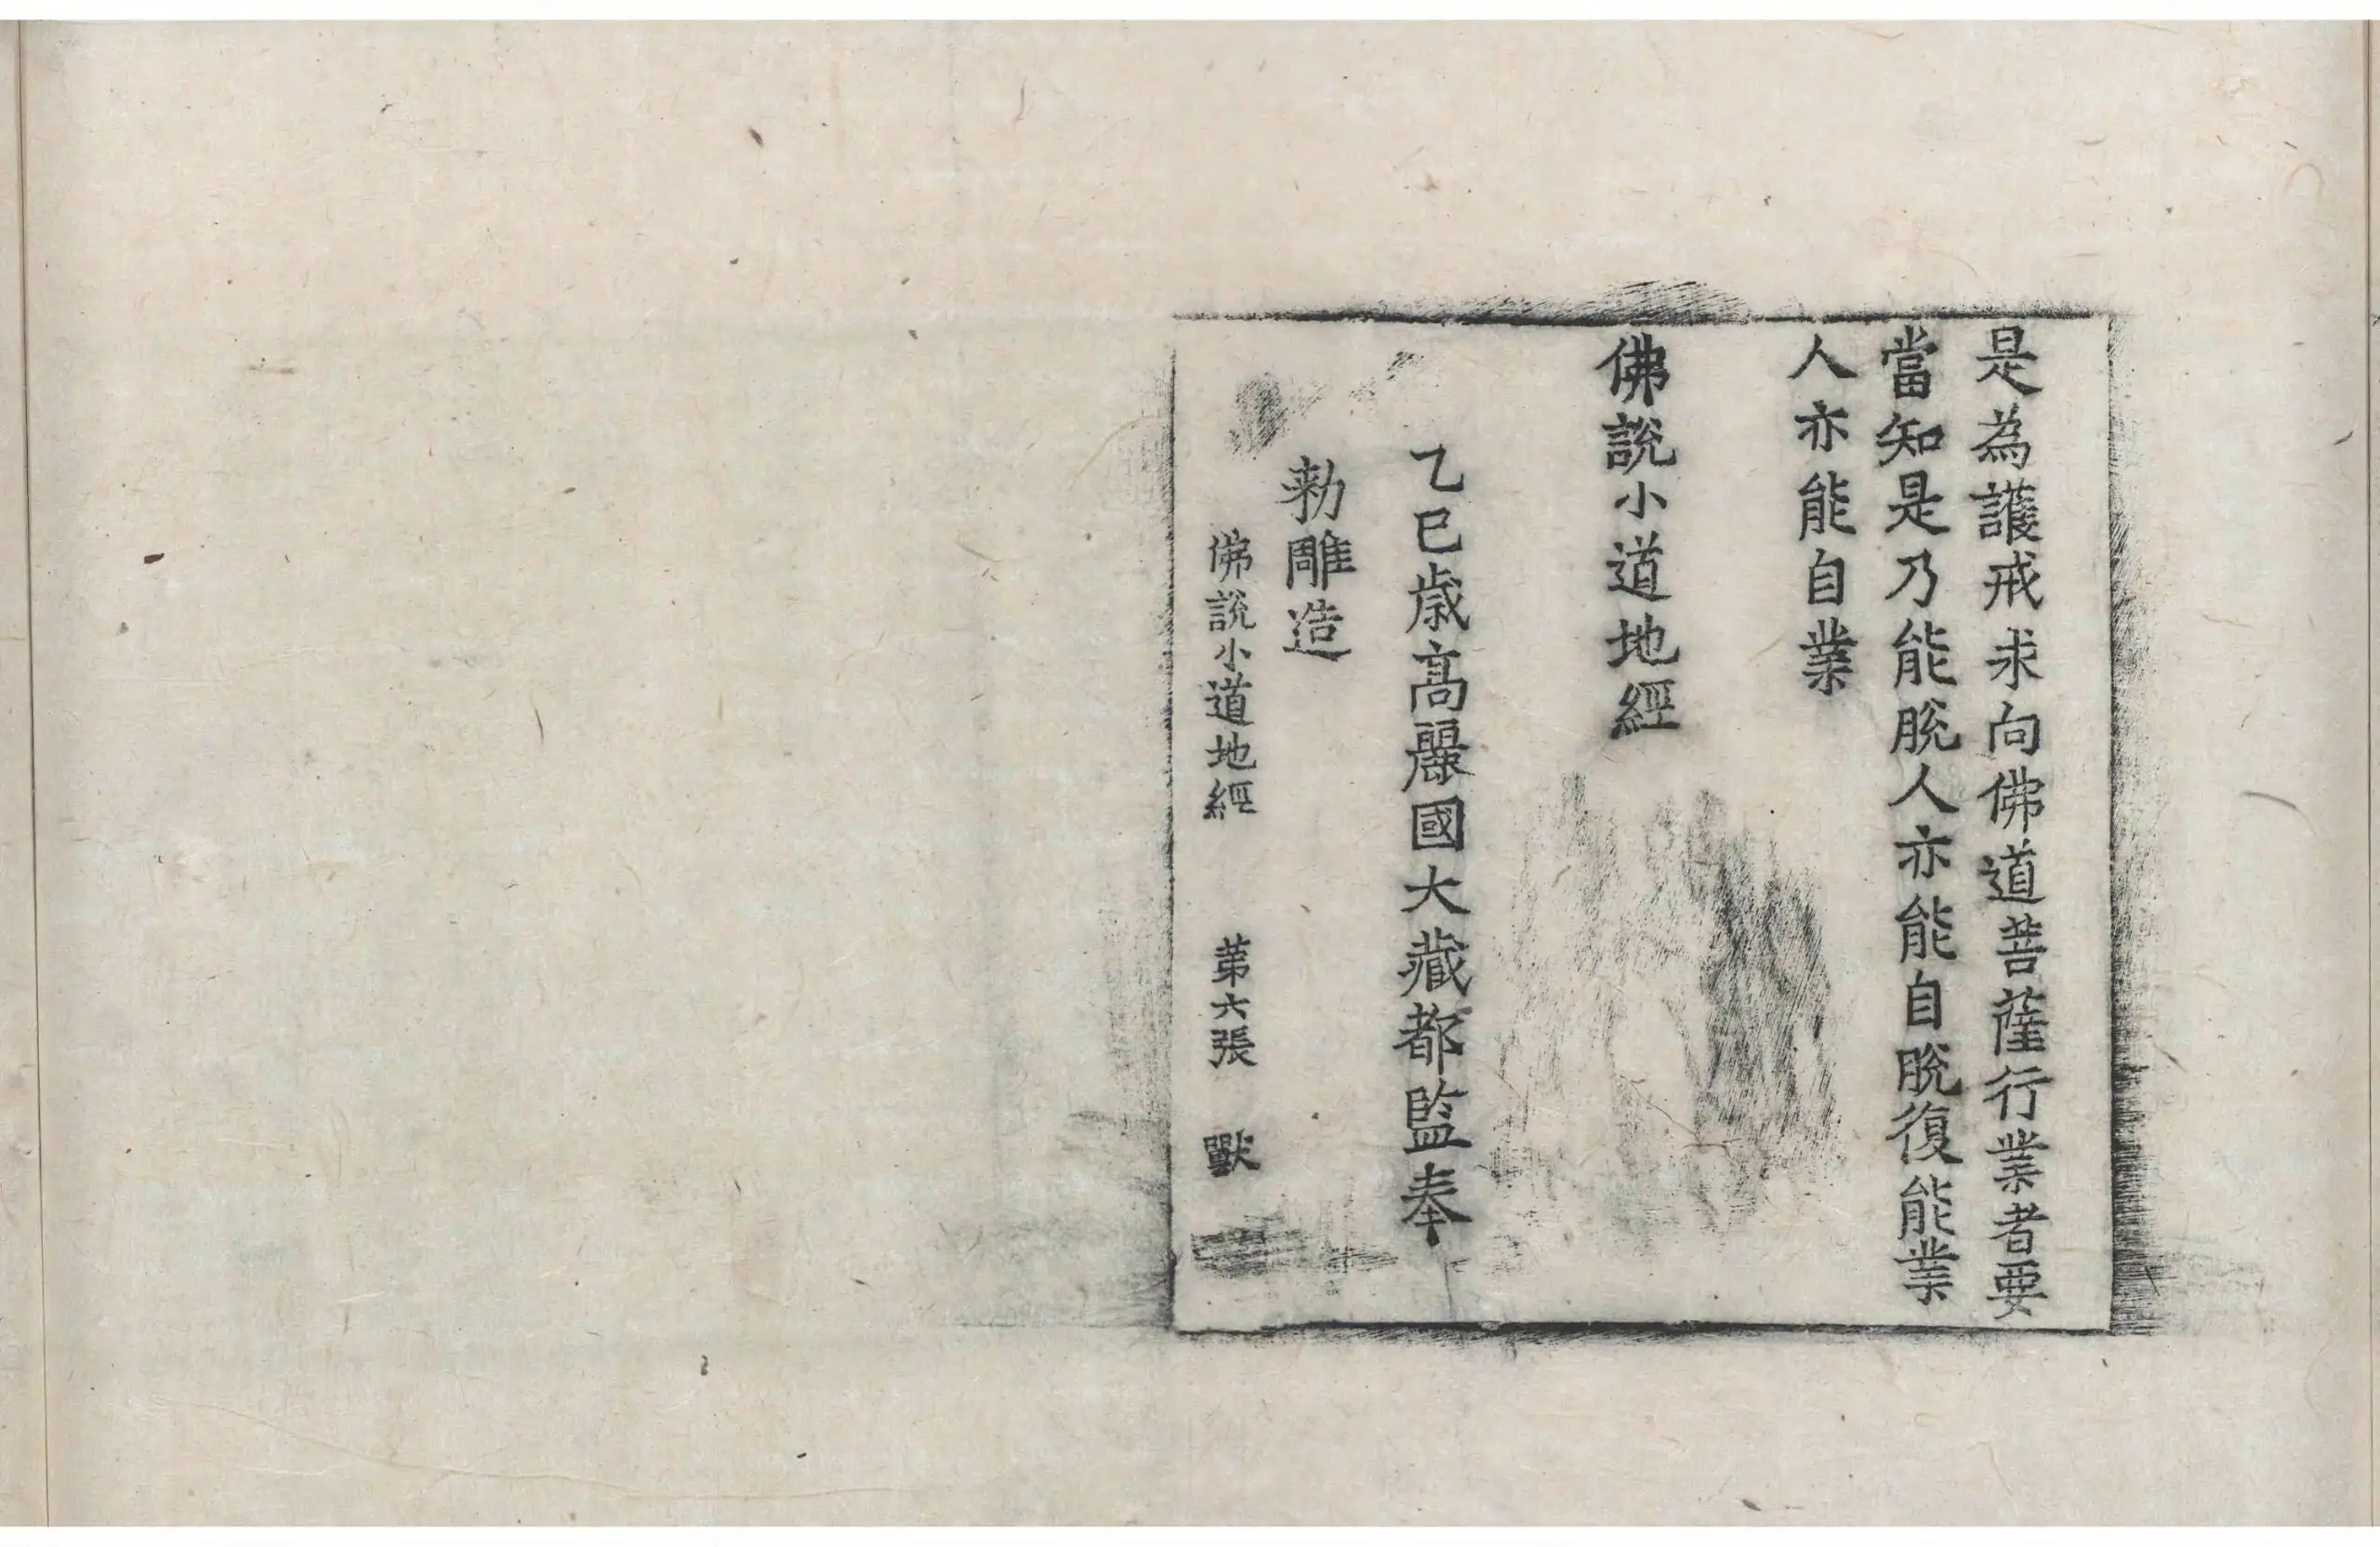 是為護戒求向佛道菩薩行業者要
當知是乃能脫人亦能自脫復能業
人亦能自業
佛說小道地經
乙巳歲高麗國大藏都監奉
勑雕造
佛說小道地經 第六張 獸